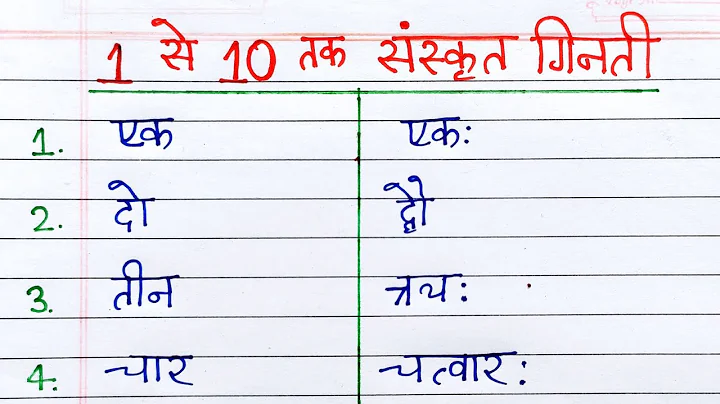 1 से 10 तक संस्कृत गिनती
1. एक एक:
2. दो द्वौ
3. तीन त्रय:
4. चार चत्वार: